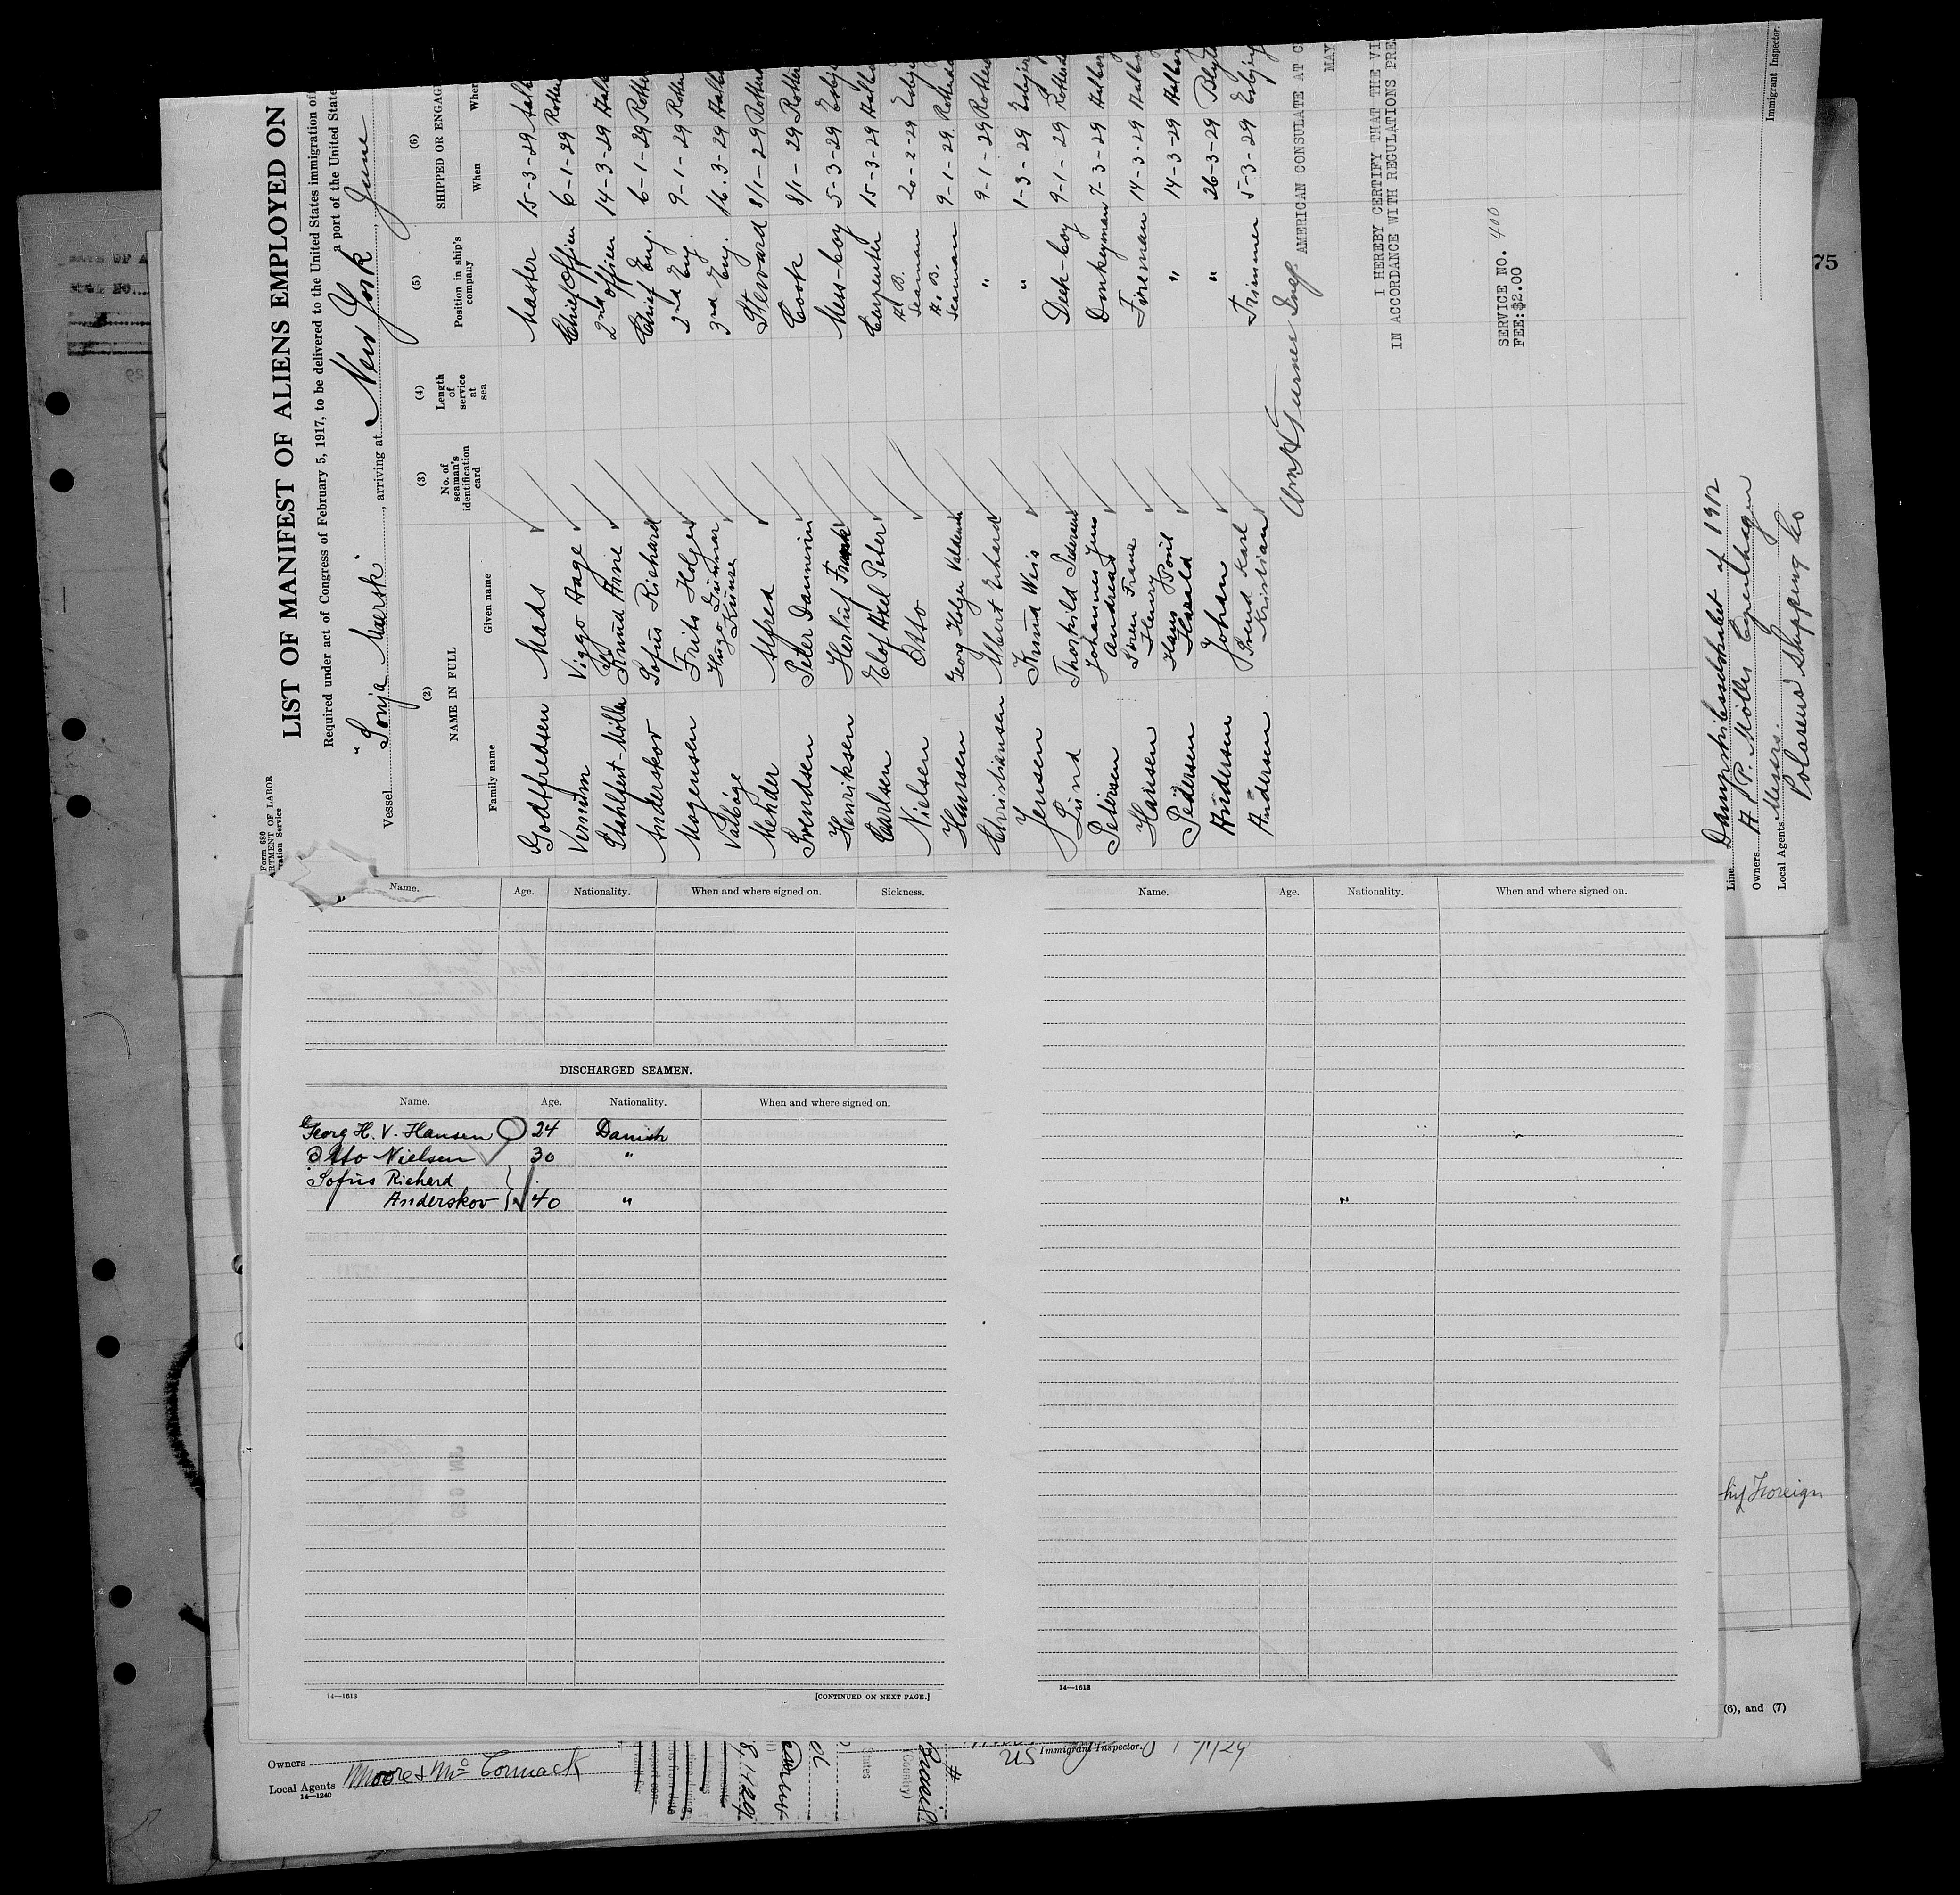 Form 680
LIST OF MANIFEST OF ALIENS EMPLOYED ON
Required under act of Congress of February 5, 1917, to be delivered to the United States immigration of
a port of the United State
Vessel "Sonja Maersk", arriving at New York, June
(2) (3) (4) (5) (6)
NAME IN FULL No. of seaman's identification card Length of service at sea Position in ship's company SHIPPED OR ENGAG
Family name Given name When Wher
Godtfredsen Mads Master 15-3-29 Aalb
Vernum Viggo Aage Chief Officer 6-1-29 Rotter
Stahlfest-Möller Knud Arne 2nd Officer 14-3-29 Aalb
Anderskov Sofus Richard Chief Eng. 6-1-29 Rotter
Mogensen Frits Holger 2nd Eng. 9-1-29 Rotte
Valbøge Hugo Gunnar 3rd Eng. 16-3-29 Aalb
Mender Alfred Steward 8/1-29 Rotter
Svendsen Peter Dannevin Cook 8/1-29 Rotter
Henriksen Herluf Frank Mess-boy 5-3-29 Esbje
Carlsen Elof Axel Peter Carpenter 15-3-29 Aalbo
Nielsen Otto A.B. Seaman 20-2-29 Esbje
Hansen Georg Holger Valdemar A.B. Seaman 9-1-29 Rotterda
Christiansen Albert Erhard " 9-1-29 Rotterd
Jensen Knud Weis " 1-3-29 Esbjer
Lund Thorkild Pedersen Deck-boy 9-1-29 Rotterda
Petersen Johannes Jens Andreas Donkeyman 7-3-29 Aalbor
Hansen Sören Franz Henry Fireman 14-3-29 Aalbor
Pedersen Hans Poul Harald " 14-3-29 Aalbor
Andersen Johan " 26-3-29 Blyt
Andersen Svend Karl Kristian Trimmer 5-3-29 Esbjerg
AMERICAN CONSULATE AT C
MAY
I HEREBY CERTIFY THAT THE VI
IN ACCORDANCE WITH REGULATIONS PRE
SERVICE NO. 400
FEE: $2.00
Line Dampskibsselskabet af 1912
Owners A. P. Möller Copenhagen
Local Agents Messrs. Polarus Shipping Co
Immigrant Inspector.
75
Name. Age. Nationality. When and where signed on. Sickness.
DISCHARGED SEAMEN.
Name. Age. Nationality. When and where signed on.
Georg H. V. Hansen 24 Danish
Otto Nielsen 30 "
Sofus Richard
Anderskov 40 "
14—1613 [CONTINUED ON NEXT PAGE.]
Name. Age. Nationality. When and where signed on.
14—1613
Foreign
(6), and (7)
Owners
Local Agents Moore & McCormack
14—1240
Immigrant Inspector.